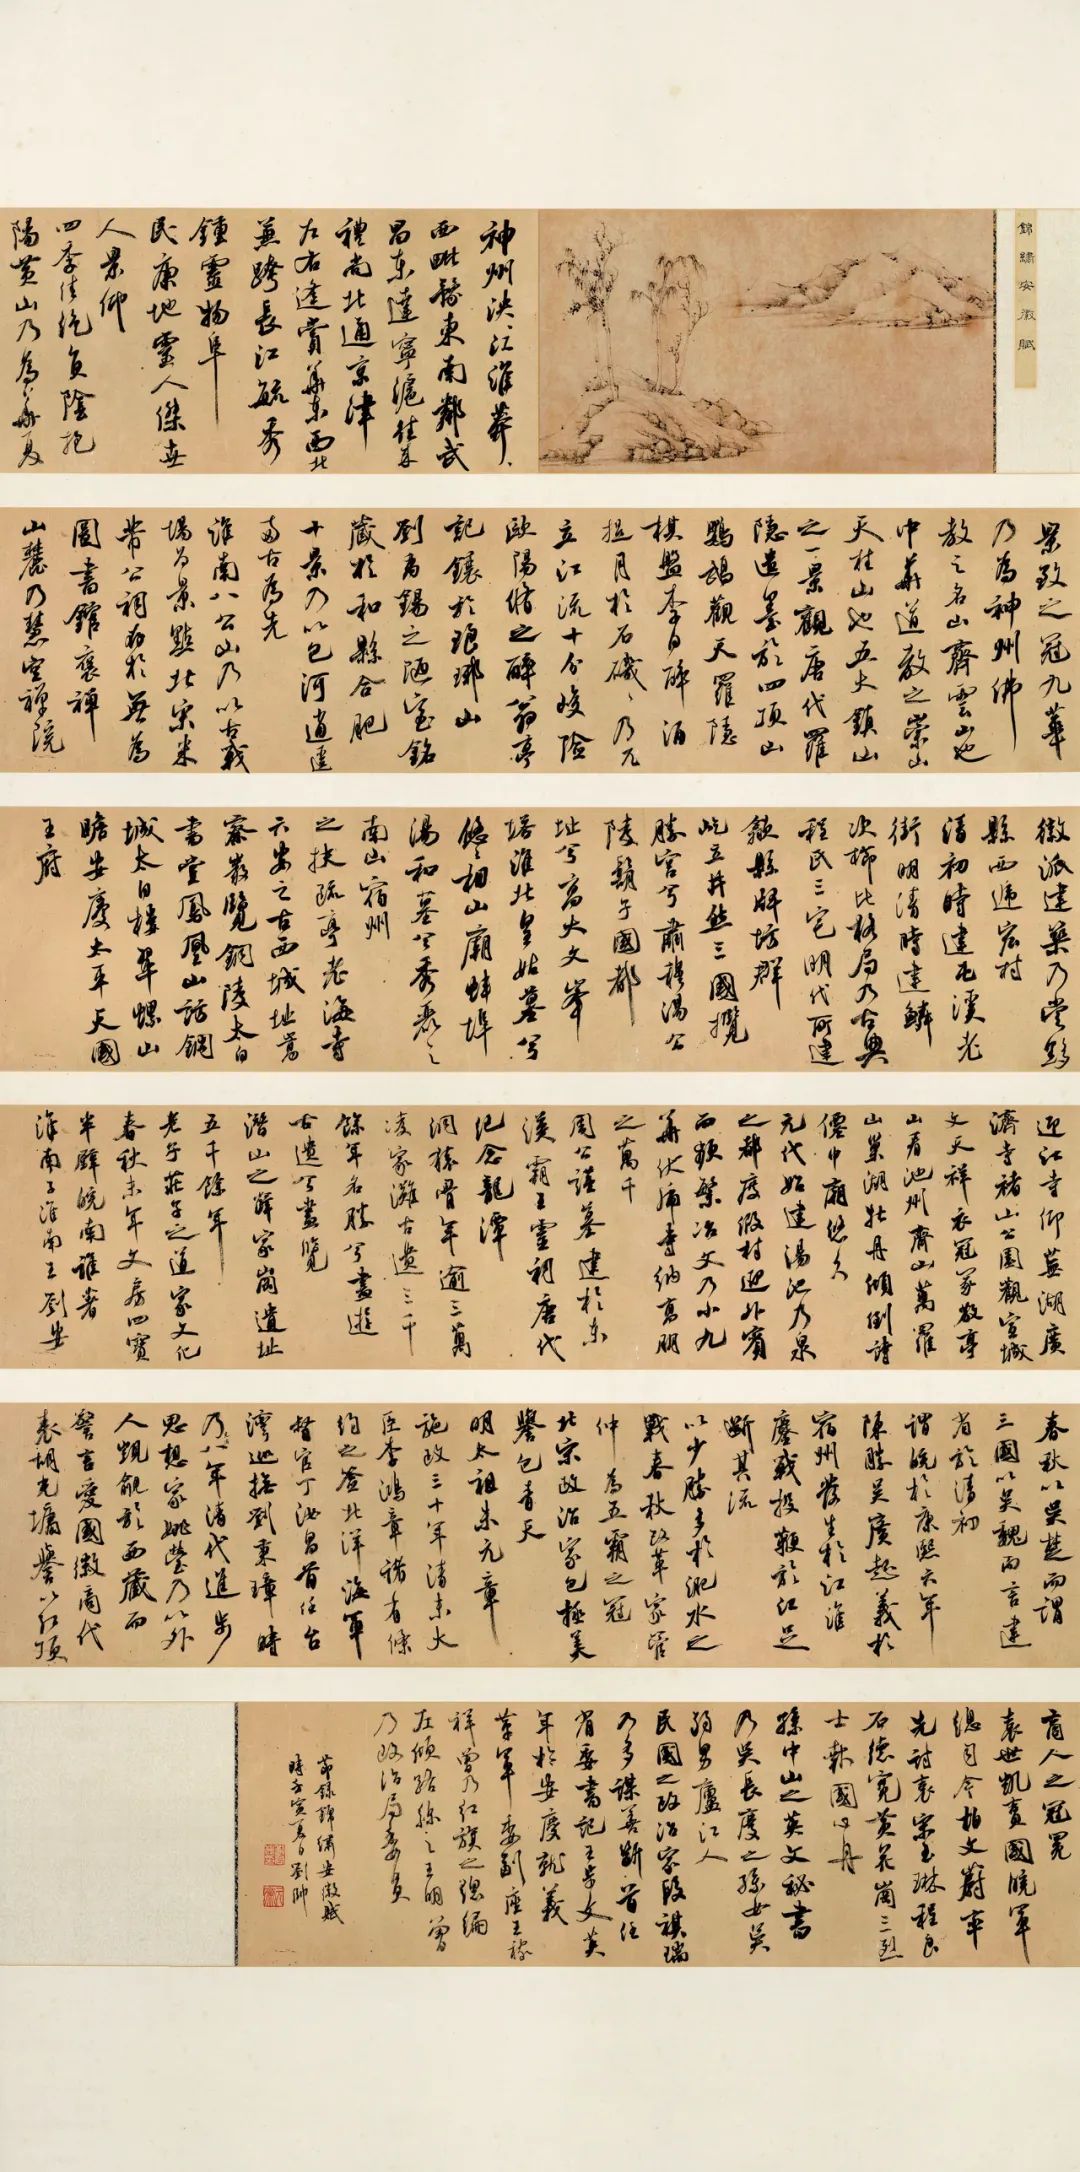 錦繡安徽賦
神州泱泱江淮莽莽
西毗豫東南鄰武
昌東達寧滬往來
禮尚北通京津
左右逢賞華東西北
兼跨長江毓秀
鍾靈物阜
民康地靈人傑世
人景仰
四季佳絕負陰抱
陽黃山乃為華夏
景致之冠九華
乃為神州佛
教之名山齊雲山也
中華道教之崇山
天柱山也五大鎮山
之一景觀唐代羅
隱遺墨於四頂山
鷓鴣觀天羅隱
棋盤李白醉酒
捉月於石磯磯乃兀
立江流十分峻險
歐陽脩之醉翁亭
記鑲於琅琊山
劉禹錫之陋室銘
藏於和縣合肥
十景乃以包河逍遥
兩古為先
淮南八公山乃以古戰
場為景點北宋米
芾公祠處於無為
圖書館褒禪
山麓乃慧空禪院
徽派建築乃堂黟
縣西遞宏村
清初時建屯溪老
街明清時建鱗
次櫛比格局乃古典
程氏三宅明代所建
歙縣牌坊群
屹立井然三國攬
勝宮兮肅穆湯公
陵鬍子國都
址兮高大文峯
塔淮北皇姑墓兮
悠悠相山廟蚌埠
湯和墓兮秀裹之
南山宿州
之扶疏亭老海寺
六安之古西城址萬
寮巖覽銅陵太白
書堂鳳凰山訪銅
城太白樓翠螺山
瞻安慶太平天國
王府
迎江寺仰蕪湖廣
濟寺褚山公園觀宣城
文天祥衣冠冢敬亭
山看池州齊山萬羅
山巢湖牡丹傾倒詩
僊中廟悠久
元代始建湯池乃泉
之都度假村迎外賓
而頻繁冶父乃小九
華伏虎寺納高朋
之萬千
周公謹墓建於東
漢霸王靈祠唐代
紀念龍潭
洞猿骨年逾三萬
凌家灘古遺三千
餘年名勝兮盡遊
古遺兮盡覽
潛山之薛家崗遺址
五千餘年
老子莊子之道家文化
春秋末年文房四寶
半壁皖南誰著
淮南子淮南王劉安
春秋以吳楚而謂
三國以吳魏而言建
省於清初
謂皖於康熙六年
陳勝吳廣起義於
宿州發生於江淮
鏖戰投鞭於江足
斷其流
以少勝多於淝水之
戰春秋改革家管
仲為五霸之冠
北宋政治家包拯美
譽包青天
明太祖朱元章
施政三十年清末大
臣李鴻章諸者條
約之簽北洋海軍
督官丁汝昌首任台
灣巡撫劉東璋時
乃八年清代進步
思想家姚瑩乃以外
人覬覦於西藏而
警言愛國徽商代
表胡光墉譽以紅頂
商人之冠冕
袁世凱賣國皖軍
總司令柏文蔚率
先討袁宋玉琳程良
石德寬黃花崗三烈
士赤國心丹
孫中山之英文秘書
乃吳長慶之孫女吳
弱男廬江人
民國之政治家段祺瑞
乃多謀善斷首任
省委書記王步文英
年於安慶就義
革軍委副座王稼
祥曾乃紅旗之總編
左傾路線之王明曾
乃政治局委員
節錄錦繡安徽賦
時壬寅夏日劉帥